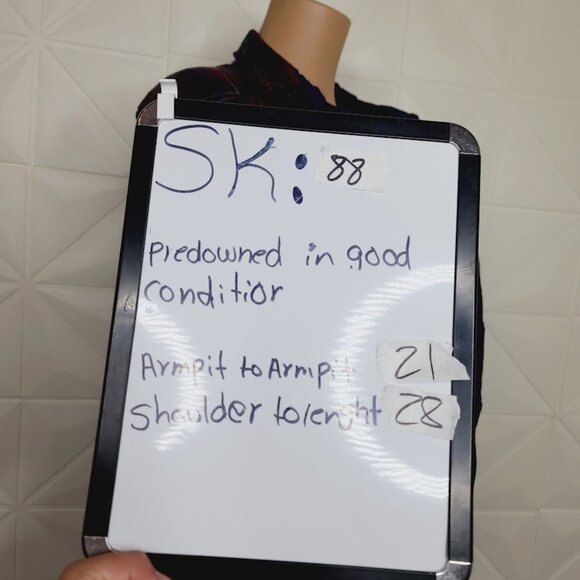 SK: 88
Predowned in good
conditior
Armpit to Armpit 21
Shoulder tolenght 28